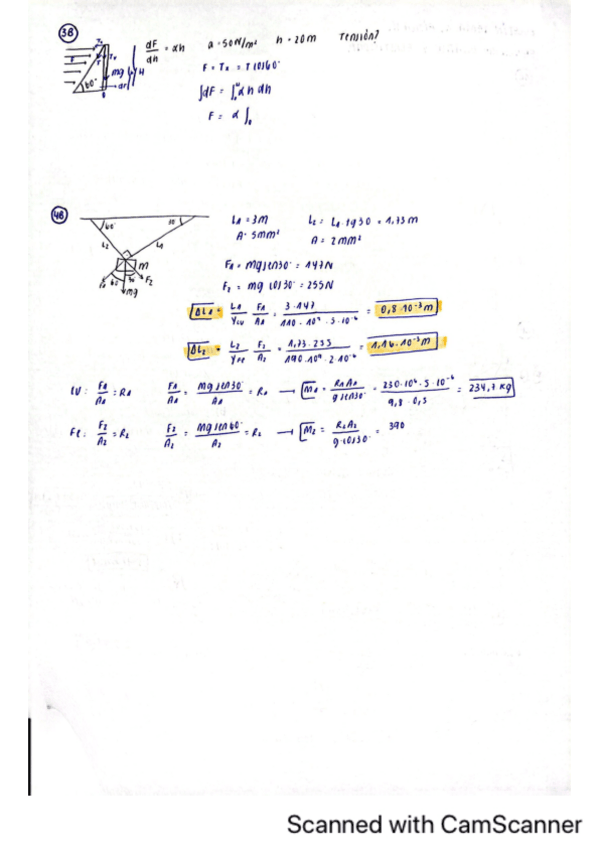 38
dF/dh = αh    a = 50 N/m²    h = 20 m    Tensión?
F = Tx = T cos 60°
∫dF = ∫₀ᴴ α h dh
F = α ∫₀
mg
H
60°
48
L1 = 3m    L2 = L1 · tg30 = 1,73 m
A = 5mm²    A = 2mm²
60°
30°
L2
L1
m
F2
mg
F1 = mg sen30° = 147N
F2 = mg cos30° = 255N
ΔL1 = L1/Ycu F1/A1 = 3·147/110·10⁹·5·10⁻⁶ = 0,8·10⁻³m
ΔL2 = L2/YFe F2/A2 = 1,73·255/190·10⁹·2·10⁻⁶ = 1,16·10⁻³m
CU: F1/A1 = R1    F1/A1 = mg sen30°/A1 = R1 → M1 = R1A1/g sen30° = 230·10⁶·5·10⁻⁶/9,8·0,5 = 234,7 Kg
Fe: F2/A2 = R2    F2/A2 = mg sen60°/A2 = R2 → M2 = R2A2/g·cos30° = 390
Scanned with CamScanner